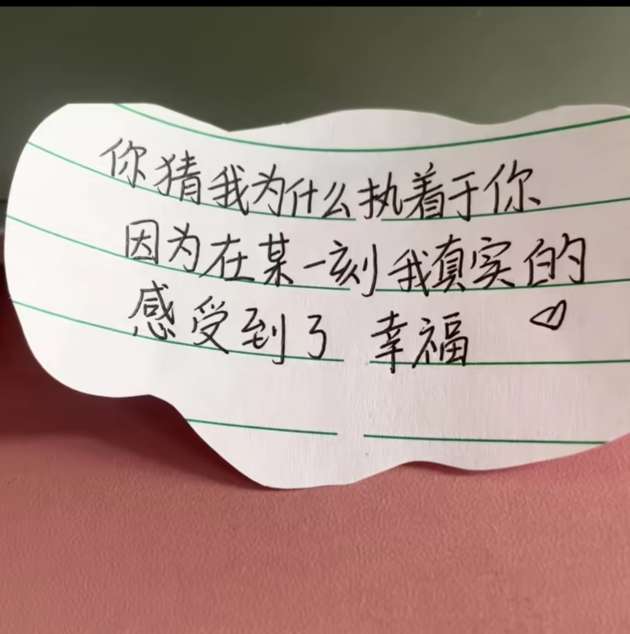 你猜我为什么执着于你
因为在某一刻我真实的
感受到了 幸福